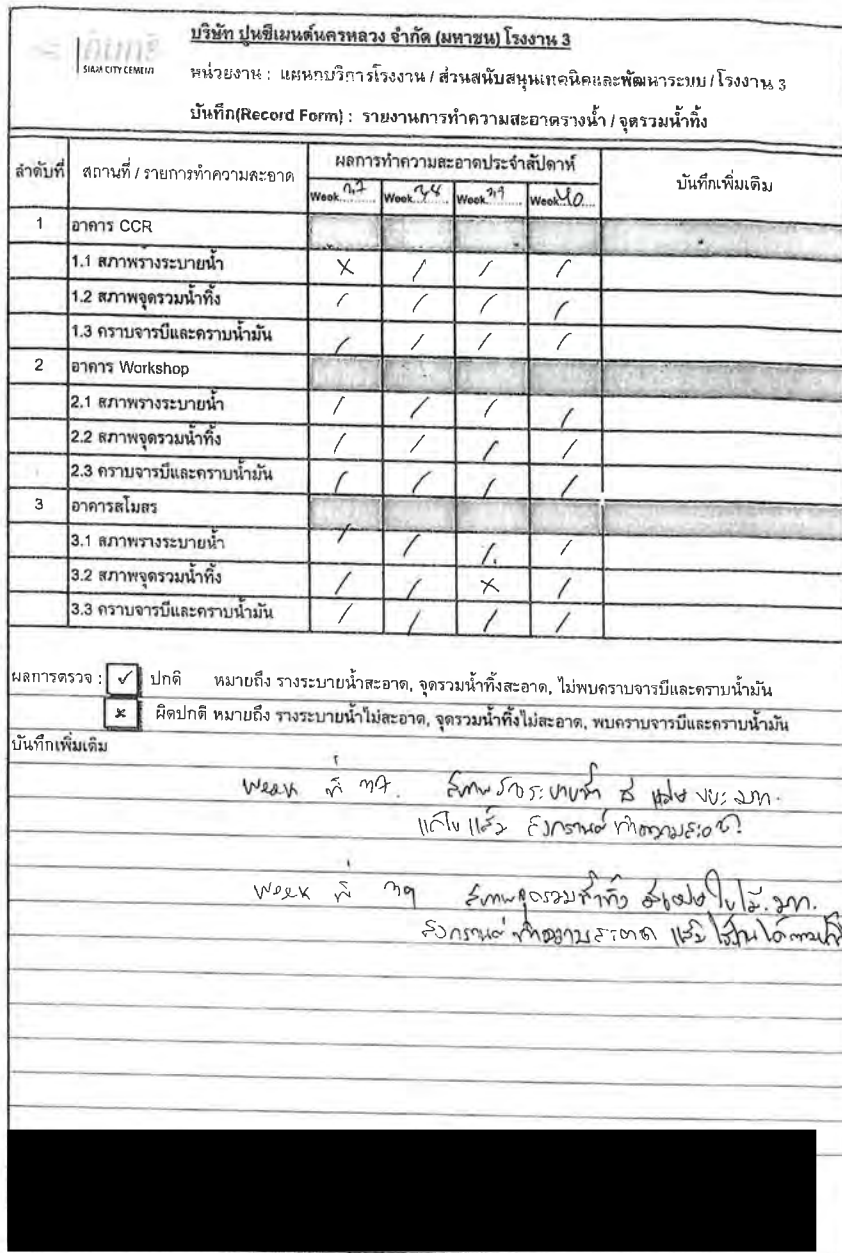 บริษัท ปูนซีเมนต์นครหลวง จำกัด (มหาชน) โรงงาน 3
SIAM CITY CEMENT
หน่วยงาน : แผนกบริการโรงงาน / ส่วนสนับสนุนเทคนิคและพัฒนาระบบ / โรงงาน 3
บันทึก(Record Form) : รายงานการทำความสะอาดรางน้ำ / จุดรวมน้ำทิ้ง
ลำดับที่ สถานที่ / รายการทำความสะอาด ผลการทำความสะอาดประจำสัปดาห์ บันทึกเพิ่มเติม
Week Week Week Week
1 อาคาร CCR
1.1 สภาพรางระบายน้ำ X / / /
1.2 สภาพจุดรวมน้ำทิ้ง / / / /
1.3 คราบจารบีและคราบน้ำมัน / / / /
2 อาคาร Workshop
2.1 สภาพรางระบายน้ำ / / / /
2.2 สภาพจุดรวมน้ำทิ้ง / / / /
2.3 คราบจารบีและคราบน้ำมัน / / / /
3 อาคารสโมสร
3.1 สภาพรางระบายน้ำ / / / /
3.2 สภาพจุดรวมน้ำทิ้ง / / X /
3.3 คราบจารบีและคราบน้ำมัน / / / /
ผลการตรวจ : ✓ ปกติ หมายถึง รางระบายน้ำสะอาด, จุดรวมน้ำทิ้งสะอาด, ไม่พบคราบจารบีและคราบน้ำมัน
x ผิดปกติ หมายถึง รางระบายน้ำไม่สะอาด, จุดรวมน้ำทิ้งไม่สะอาด, พบคราบจารบีและคราบน้ำมัน
บันทึกเพิ่มเติม
Week ที่ ๓๗. สภาพรางระบายน้ำ มี เศษ ขยะ
แก้ไข แล้ว ทำความสะอาด
Week ที่ ๓๙ สภาพจุดรวมน้ำทิ้ง มีเศษ ใบไม้.
ทำความสะอาด แล้ว